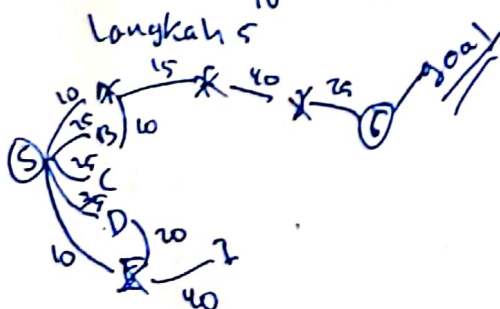 Langkah 5
10 A 15 K 40 25 G goal
25 B 10
S 25 C
25 D 20
10 E 40 I